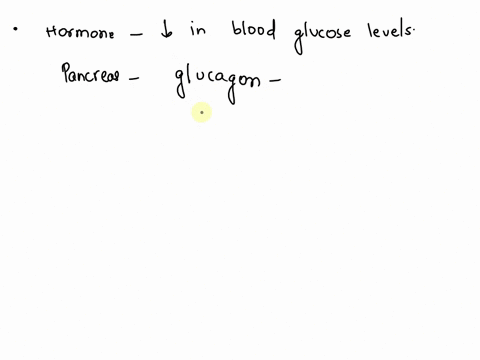 • Hormone – ↓ in blood glucose levels.
Pancreas – glucagon –